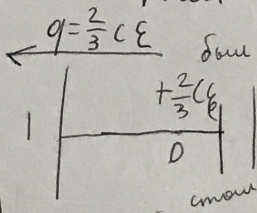 q = 2/3 Cℰ
был
+2/3 Cℰ
1
0
стал